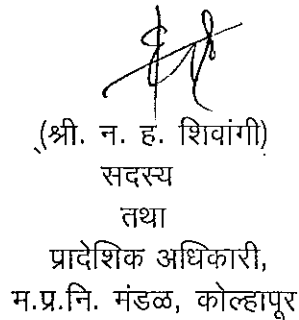 (श्री. न. ह. शिवांगी)
सदस्य
तथा
प्रादेशिक अधिकारी,
म.प्र.नि. मंडळ, कोल्हापूर